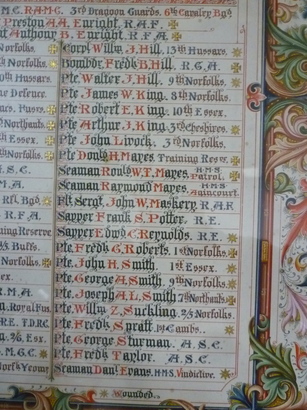 M.C. R.A.M.C. 3rd Dragoon Guards. 6th Cavalry Bgd
Preston A.A. Enright. R.A.F.
Anthony B. Enright. R.F.A.
Norfolks. Corpl Willm J. Hill, 13th Hussars.
R.F.A. Bombdr. Fredk B. Hill. R.G.A.
10th Hussars. Pte. Walter J. Hill. 9th Norfolks.
re Defence. Pte. James W. King. 8th Norfolks.
Pte Robert E. King. 10th Essex.
Northants Pte. Arthur J. King. 3rd Cheshires.
Norfolks Pte. John Livock. 3rd Norfolks.
Norfolks Pte Donld H. Mayes. Training Resve.
S.C. Seaman Ronld W.T. Mayes. H.M.S. Patrol.
M.A. Seaman Raymond Mayes. H.M.S. Agincourt.
Rfl Bgd Flt Sergt. John W. Maskery. R.A.F.
R.F.A. Sapper Frank S. Potter. R.E.
Training Reserve Sapper Edwd C. Reynolds. R.E.
Buffs. Pte. Fredk G. Roberts. 1st Norfolks.
Norfolks. Pte. John H. Smith. 1st Essex.
sex. Pte. George A. Smith. 9th Norfolks.
R.M.A. Pte. Joseph A.L. Smith. 7th Northants
Royal Fus. Pte. Willm Z. Suckling. 2/5 Norfolks.
R.E. T.D.R.C. Pte. Fredk Spratt. 1st Cambs.
Essex. Pte. George Sturman. A.S.C.
M.G.C. Pte. Fredk Taylor. A.S.C.
Norfk Yeom Seaman Danl Evans. H.M.S. Vindictive.
Wounded.